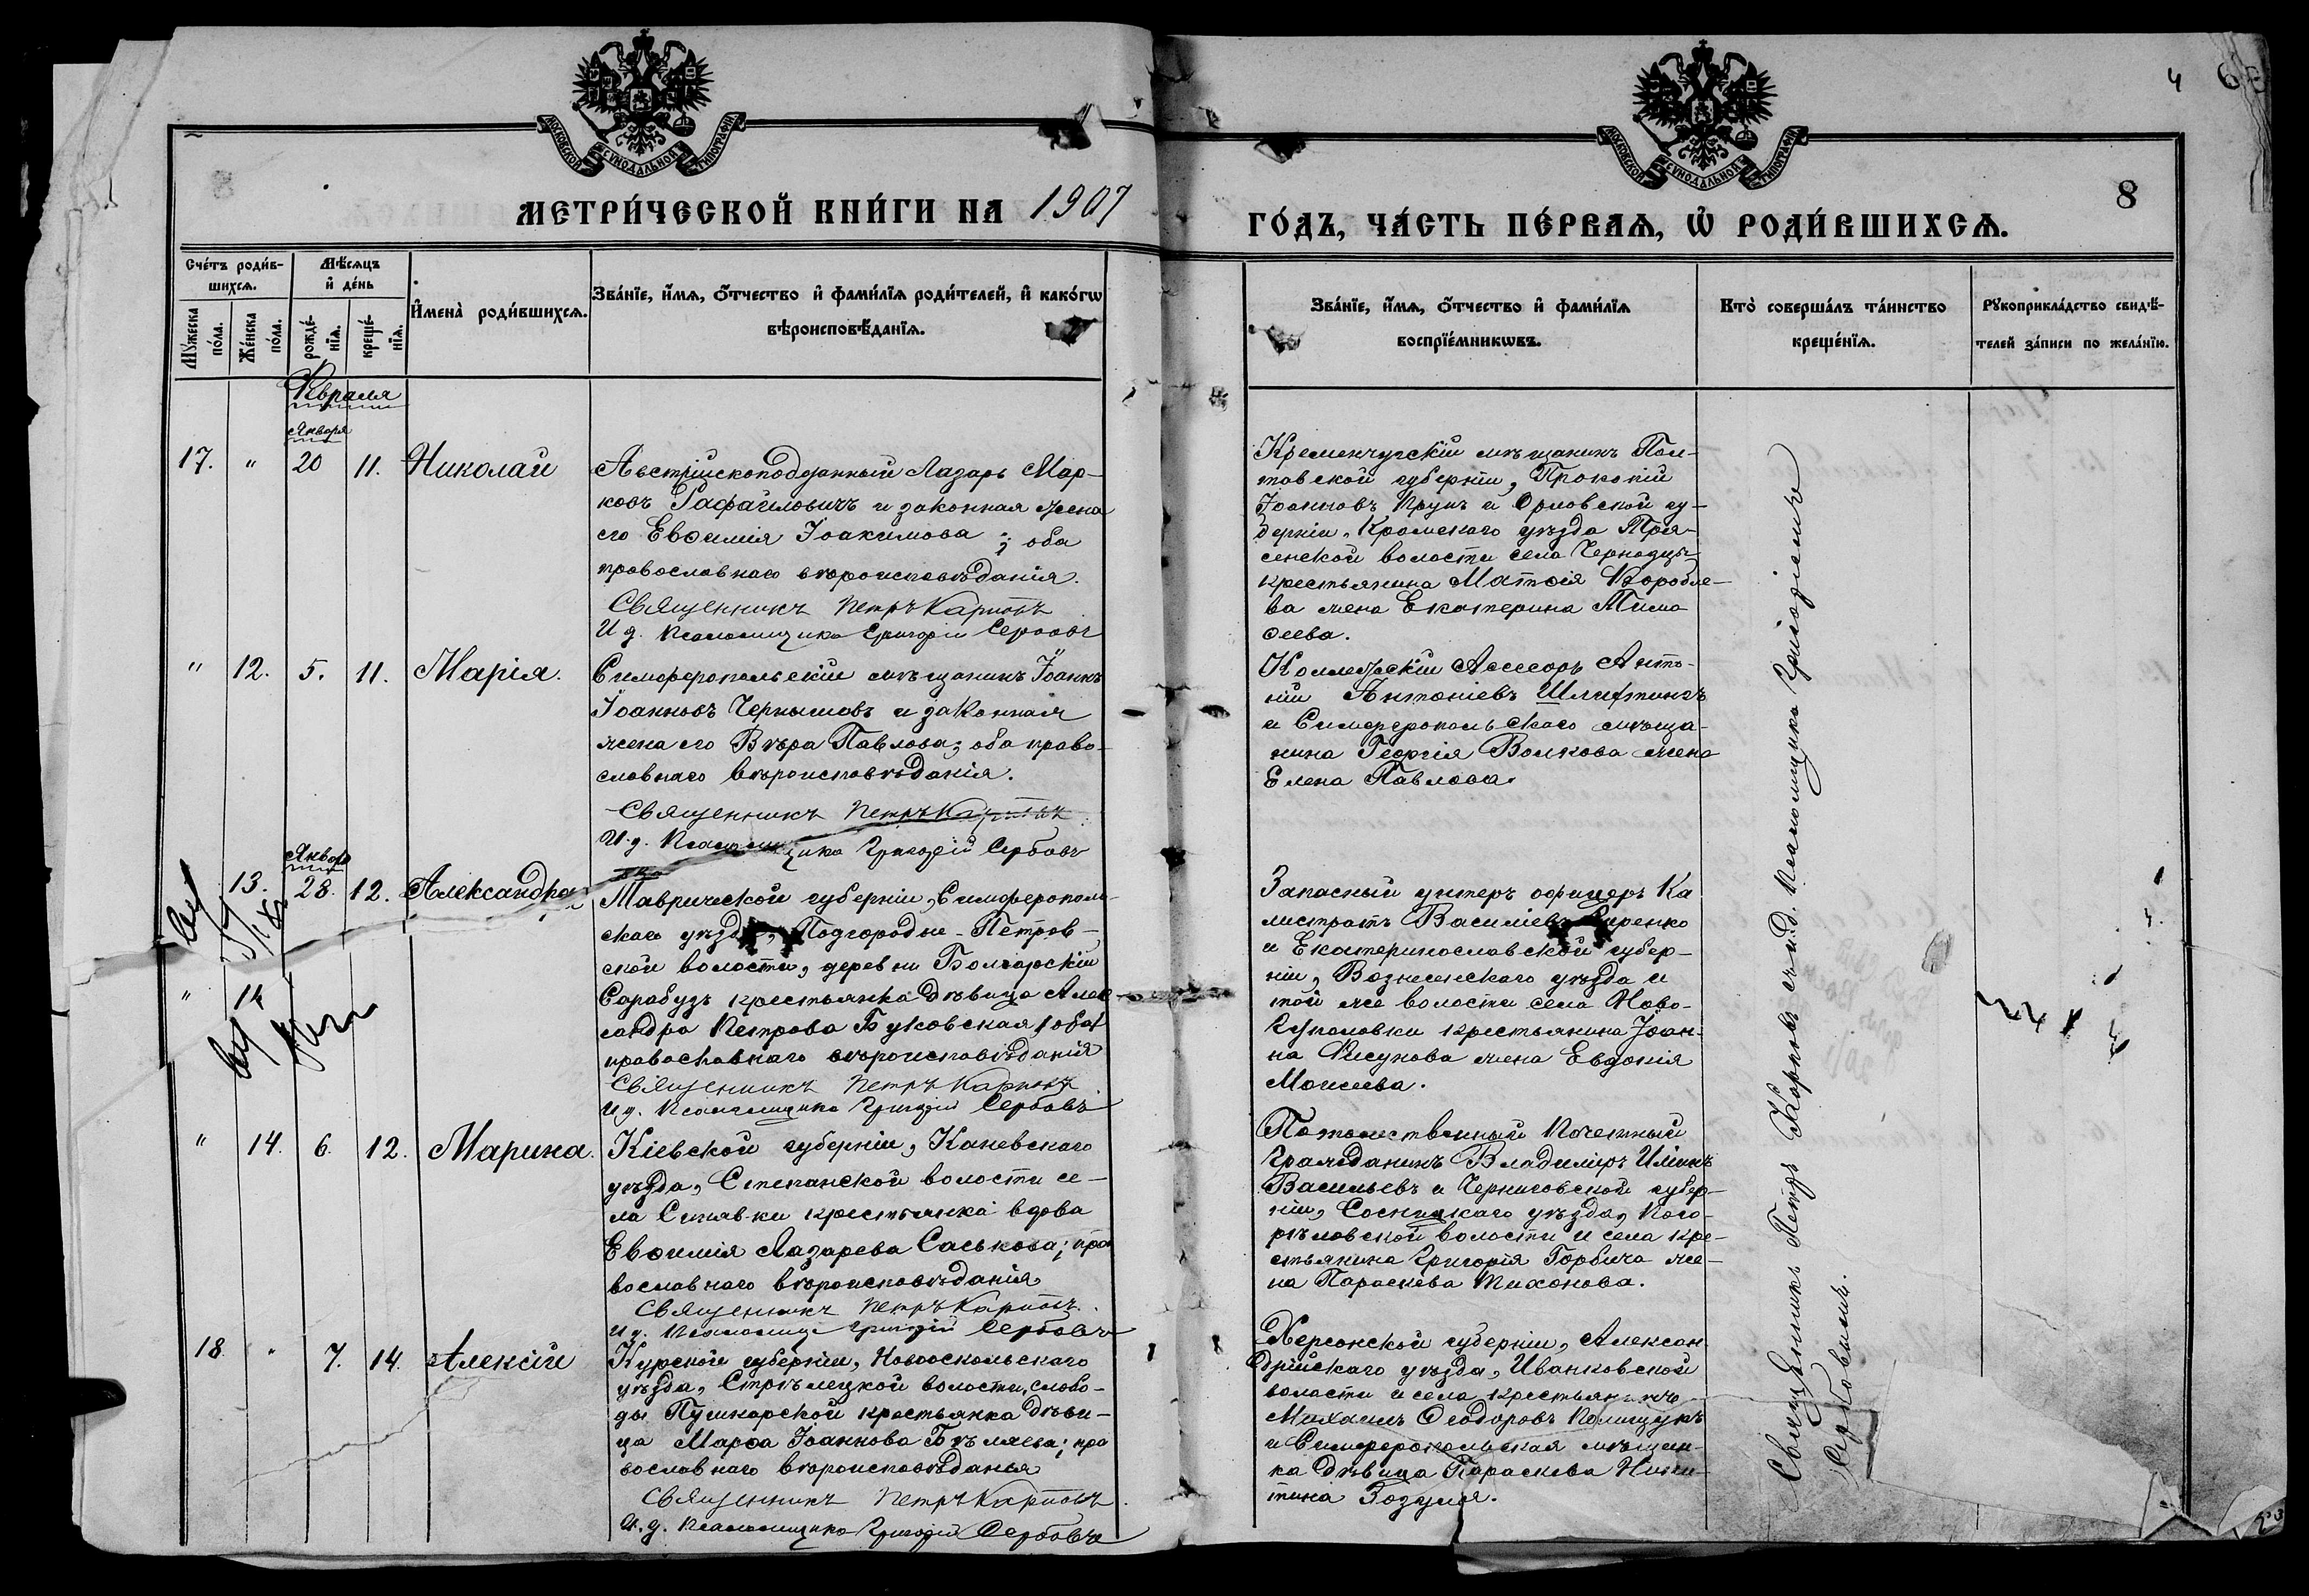 4
МОСКОВСКОЙ СѴНОДАЛЬНОЙ ТИПОГРАФІИ
МОСКОВСКОЙ СѴНОДАЛЬНОЙ ТИПОГРАФІИ
8
МЕТРИ́ЧЕСКОЙ КНИ́ГИ НА 1907
ГО́ДЪ, ЧА́СТЬ ПЕ́РВАѦ, Ѡ҆ РОДИ́ВШИХСѦ.
Сче́тъ роди́в-
шихсѧ.
Мѣ́сѧцъ
и҆ де́нь
Мꙋ́жеска
по́ла.
Же́нска
по́ла.
рожде́-
нїѧ.
креще́-
нїѧ.
И҆мена̀ роди́вшихсѧ.
Зва́нїе, и҆́мѧ, ѻ҆́тчество и҆ фами́лїѧ роди́телей, и҆ како́гѡ
вѣроисповѣ́данїѧ.
Зва́нїе, и҆́мѧ, ѻ҆́тчество и҆ фами́лїѧ
воспрїе́мникѡвъ.
Кто̀ соверша́лъ та́инство
креще́нїѧ.
Рꙋкоприкла́дство свидѣ́-
телей за́писи по жела́нїю.
Февраля
Января
17. " 20 11. Николай
Австрійскоподданный Лазарь Мар-
ковъ Рафаиловичъ и законная жена
его Евѳимія Іоакимова; оба
православнаго вѣроисповѣданія.
Священникъ Петръ Карповъ
И д. Псаломщика Григорій Сербовъ
Кременчугскій мѣщанинъ Пол-
тавской губерніи, Прокопій
Іоанновъ Крупъ и Орловской гу-
берніи, Кромскаго уѣзда Тря-
сенской волости села
крестьянина Матѳія Воробье-
ва жена Екатерина Тимо
ѳеева.
" 12. 5. 11. Марія.
Симферопольскій мѣщанинъ Іоаннъ
Іоанновъ Чернышовъ и законная
жена его Вѣра Павлова; оба право-
славнаго вѣроисповѣданія.
Священникъ Петръ Карповъ
И. д. Псаломщика Григорій Сербовъ
Коллежскій Асессоръ Анто-
ній Антоніевъ
и Симферопольскаго мѣща-
нина Георгія Волкова жена
Елена Павлова.
Января
" 13. 28. 12. Александра
Таврической губерніи, Симферополь-
скаго уѣзда, Подгородне-Петров-
ской волости, деревни Болгарскій
Сарабузъ крестьянка дѣвица Алек
сандра Петрова Буковская оба
православнаго вѣроисповѣданія
Священникъ Петръ Карповъ
И д. Псаломщика Григорій Сербовъ
Запасный унтеръ офицеръ Ка
листратъ Василіевъ
и Екатеринославской губер-
ніи, Вознесенскаго уѣзда и
той же волости села Ново-
крестьянина Іоан-
на Рисунова жена Евдокія
Моисеева.
" 14. 6. 12. Марина.
Кіевской губерніи, Каневскаго
уѣзда, Степанской волости се-
ла Синявки крестьянка вдова
Евѳимія Лазарева Саськова; пра
вославнаго вѣроисповѣданія
Священникъ Петръ Карповъ.
И д. Псаломщ Григорій Сербовъ
Потомственный Почетный
Гражданинъ Владиміръ Иліинъ
Васильевъ и Черниговской губер-
ніи, Сосницкаго уѣзда, Пого-
рѣловской волости и села кре-
стьянина Григорія Горбача же-
на Параскева Тихонова.
18. " 7. 14. Алексій
Курской губерніи, Новооскольскаго
уѣзда, Стрѣлецкой волости, слобо-
ды Пушкарской крестьянка дѣви-
ца Марѳа Іоаннова Бѣляева; пра
вославнаго вѣроисповѣданія
Священникъ Петръ Карповъ.
И. д. Псаломщика Григорій Сербовъ
Херсонской губерніи, Алексан
дрійскаго уѣзда, Иванковской
волости и села крестьянинъ
Михаилъ Ѳеодоровъ Полищукъ
и Симферопольская мѣщан-
ка дѣвица Параскева Ники-
тина Зозуля.
Священникъ Петръ Карповъ съ и.д. Псаломщика Григоріемъ
Сербовымъ.